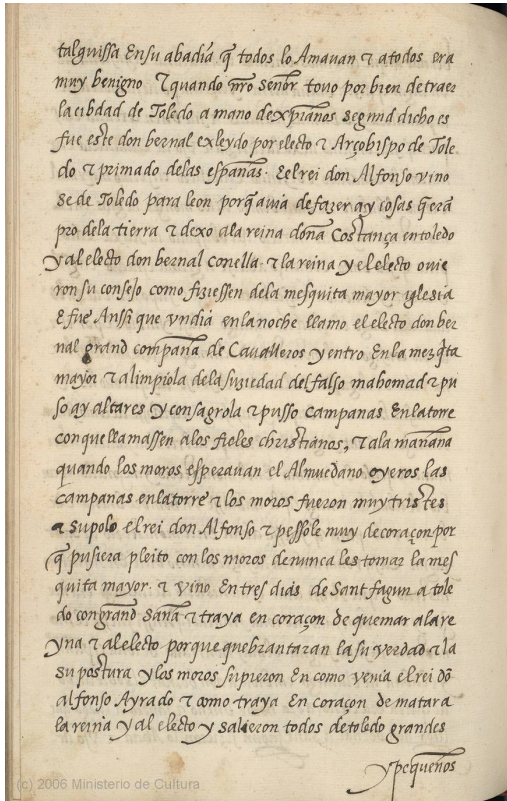 talguissa Ensu abadia q̃ todos lo Amavan ⁊ atodos era
muy benigno ⁊ quando nr̃o señor tovo por bien detraer
la cibdad de Toledo a mano dexpĩanos segund dicho es
fue este don bernal exleydo por electo ⁊ Arçobispo de Tole
do ⁊ primado delas españas. Eel rei don Alfonso vino
se de Toledo para leon porq̃ avia defazer ay cosas q̃ erã
pro dela tierra ⁊ dexo ala reina doña Costança entoledo
y al electo don bernal conella. ⁊ la reina y el electo ovie
ron su consejo como fiziessen dela mesquita mayor iglesia
E fue Anssi que vndia enlanoche llamo el electo don ber
nal grand compaña de Cavalleros y entro Enla mezq̃ta
mayor ⁊ alimpiola dela suziedad del falso mahomad ⁊ pu
so ay altares y consagrola ⁊ pusso campanas Enlatorre
conquellamassen alos fieles christianos, ⁊ ala mañana
quando los moros esperavan el Almuedano oyeros las
campanas enlatorre ⁊ los moros fueron muy tristes
a supolo el rei don Alfonso ⁊ pessole muy decoraçon por
q̃ pusiera pleito con los moros denunca les tomar la mes
quita mayor. ⁊ vino Entres dias de Sant fagun a tole
do congrand saña ⁊ traya en coraçon de quemar alare
yna ⁊ alelecto porque quebrantaran la su verdad ⁊ la
su postura y los moros supieron En como venia el rei dõ
alfonso Ayrado ⁊ como traya En coraçon de matar a
la reina y al electo y salieron todos detoledo grandes
y pequeños
(c) 2006 Ministerio de Cultura